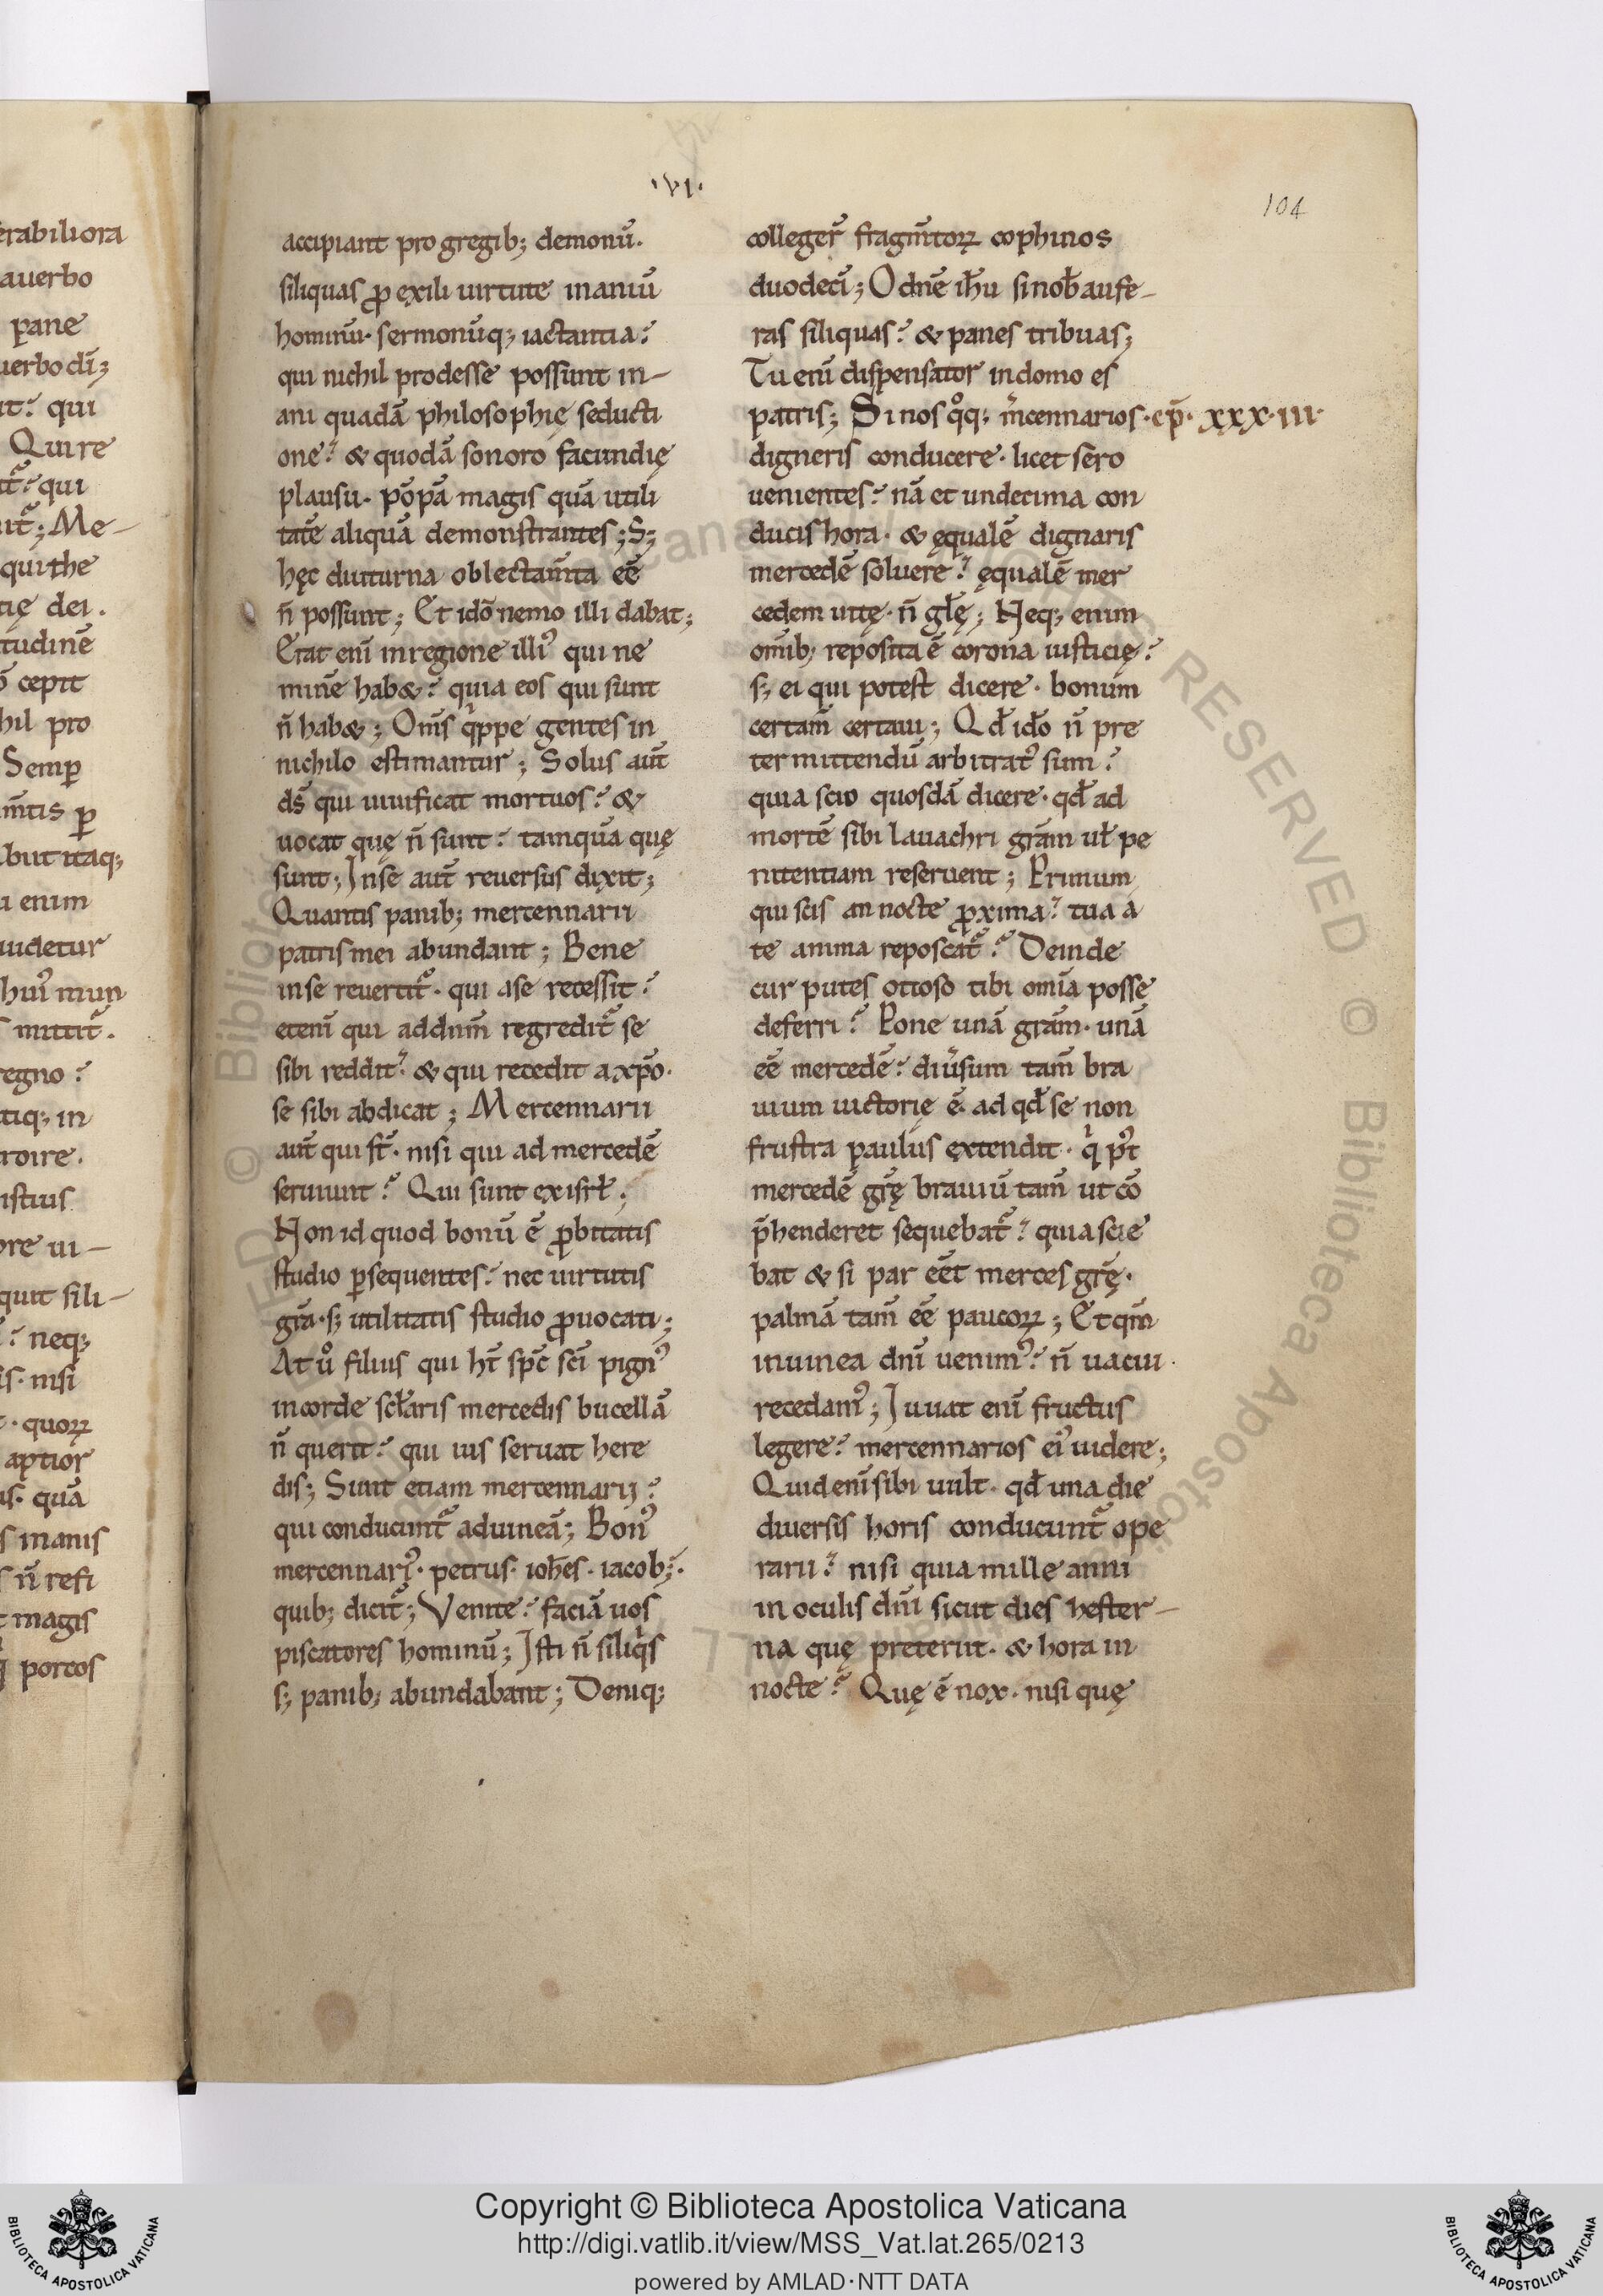 erabiliora
auerbo
pane
uerbo dī;
ıt? qui
Qui re
t᷑? qui
ut᷑; Me-
qui the
tię dei.
tudinē
ō cepit
hil pro
Semꝑ
m̄tis ꝑ
but itaq;
u enim
uidetur
hui᷒ mun
s mittit᷑.
regno?
tiq; in
roire.
istius
ore ui-
quit sili-
? neq;
is· nisi
· quoꝝ
aptior
us· quā
s inanis
s n̄ refi
t magis
porcos
·VI·
104
accipiant pro gregib; demonū.
siliquas ꝓ exili uirtute inaniū
hominū· sermonūq; iactantia?
qui nichil prodesse possunt in-
ani quadā philosophię seducti
one? & quodā sonoro facundię
plausu· pōpā magis quā utili
tatē aliquā demonstrantes; S;
hęc diuturna oblectam̄ta eē
n̄ possunt; Et idō nemo illi dabat;
Erat enī in regione illi᷒ qui ne
minē hab&? quia eos qui sunt
n̄ hab&; Om̄s qͥppe gentes in
nichilo estimantur; Solus aut̄
ds̄ qui uiuificat mortuos? &
uocat quę n̄ sunt? tamquā quę
sunt; In se aut̄ reuersus dixit;
Quantis panib; mercennarii
patris mei abundant; Bene
in se reuertit᷑· qui a se recessit?
etenī qui ad dn̄m regredit᷑ se
sibi reddit? & qui recedit a xp̄o·
se sibi abdicat; Mercennarii
aut̄ qui st̄· nisi qui ad mercedē
seruiunt? Qui sunt ex isrł;
Non id quod bonū ē ꝓbitatis
studio ꝑsequentes? nec uirtutis
grā· s; utilitatis studio ꝓuocati;
At uͦ filius qui ht̄ sp̄c sc̄i pign᷒
in corde sc̄łaris mercedis bucellā
n̄ querit? qui ius seruat here
dis; Sunt etiam mercennarij?
qui conducunt᷑ ad uineā; Bon᷒
mercennari᷒· petrus· ioh̄es· iacob;·
quib; dicit᷑; Venite? faciā uos
piscatores hominū; Isti n̄ siliqͣs
s; panib; abundabant; Deniq;
colleger̄ fragm̄toꝝ cophinos
duodecī; O dn̄e ih̄u si nob̄ aufe-
ras siliquas? & panes tribuas;
Tu enī dispensator in domo es
patris; Si nos qͦq; m̓cennarios· ep̄· xxx·III·
digneris conducere· licet sero
uenientes? nā et undecima con
ducis hora· & ęqualē dignaris
mercedē soluere? ęqualē mer
cedem uitę· n̄ gl̄ę; Neq; enim
om̄ib; reposita ē corona iusticię?
s; ei qui potest dicere· bonum
certam̄ certaui; Qd̄ idō n̄ pre
termittendū arbitrat᷒ sum?
quia scio quosdā dicere· qd̄ ad
mortē sibi lauachri grām uł pe
nitentiam reseruent; Primum
qui scis an nocte ꝓxima? tua a
te anima reposcat᷑? Deinde
cur putes otioso tibi omīa posse
deferri? Pone unā grām· unā
eē mercedē? diu̓sum tam̄ bra
uium uictorię ē· ad qd̄ se non
frustra paulus extendit· qͥ p᷒t
mercedē grę̄ brauiū tam̄ ut cō
p̄henderet sequebat᷑? quia scie
bat & si par eēt merces grę̄·
palmā tam̄ eē paucoꝝ; Et qm̄
in uinea dn̄i uenim᷒? n̄ uacui
recedam᷒; Iuuat enī fructus
legere? mercennarios ei᷒ uidere;
Quid enī sibi uult· qd̄ una die
diuersis horis conducunt᷑ ope
rarii? nisi quia mille anni
in oculis dn̄i sicut dies hester-
na quę preteriit· & hora in
nocte? Quę ē nox· nisi quę
Copyright © Biblioteca Apostolica Vaticana
http://digi.vatlib.it/view/MSS_Vat.lat.265/0213
powered by AMLAD·NTT DATA
BIBLIOTECA APOSTOLICA VATICANA
BIBLIOTECA APOSTOLICA VATICANA